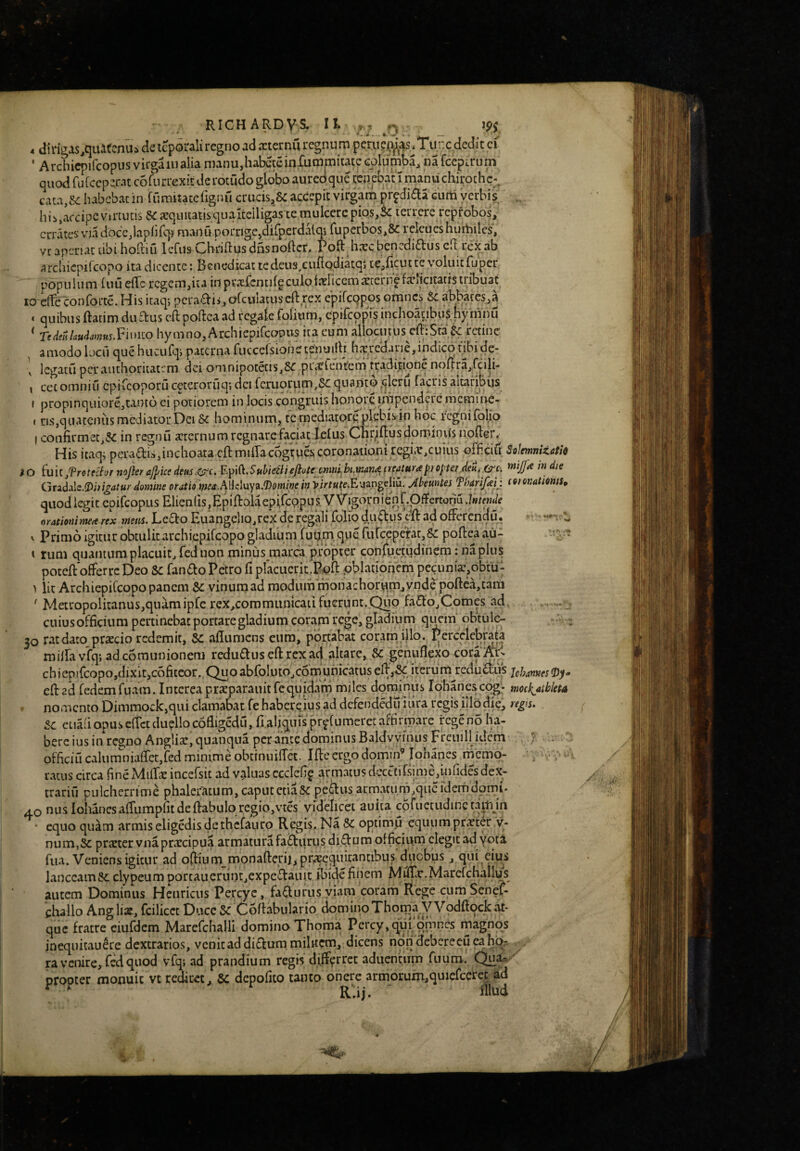 RICHARDVS. II. 195
dirigas,quàtenus de tẽporali regno ad æternũ regnum peruenias. Tunc dedit ei
Archiepiscopus virgã in alia manu,habẽtẽ in summitate columbã, nã sceptrum
quod susceperat cõsurrexit de rotũdo globo aureo quẽ tenebat ĩ manu chirothe-
cata,& habebat in sũmitate signũ crucis,& accepit virgam prędictã cum verbis
his,accipe virtutis & æquitatis qua ĩtelligas te mulcere pios,& terrere reprobos,
errãtes viã doce,lapsisq; manũ porrige,disperdasq; superbos,& releues humiles,
vt aperiat tibi hostiũ Iesus Christus dñs noster. Post hæc benedictus est rex ab
archiepiscopo ita dicente: Benedicat te deus,custodiatq; te,sicut te voluit super
populum suũ esse regem,ita in præsenti sęculo fælicem æternę fælicitatis tribuat
10 esse consortẽ. His itaq; peractis,osculatus est rex episcopos omnes & abbates,à
quibus statim ductus est postea ad regale solium, episcopis inchoãtibus hymnũ
Te deũ laudamus. Finito hymno, Archiepiscopus ita eum allocutus est: Sta & retine
amodo locũ quẽ hucusq; paterna successione tenuisti hæredariè,indico tibi de-
legatũ per authoritatem dei omnipotẽtis,& præsentem traditionẽ nostrã,scili-
cet omniũ episcoporũ cęterorũq; dei seruorum,& quantò clerũ sacris altaribus
propinquiorẽ,tantò ei potiorem in locis congruis honorẽ impendere memine-
ris,quatenùs mediator Dei & hominum, te mediatorẽ plebis in hoc regni solio
confirmet,& in regnũ æternum regnare faciat Iesus Christus dominus noster.
His itaq; peractis,inchoata est missa cõgrues coronationi regiæ,cuius officiũ Solemnizatio
20 fuit, Protector noster aspice deus &c. Epist. Subiecti estote omni humanæ creaturæ propter deũ, &c. missæ in die
Gradale. Dirigatur domine oratio mea. Alleluya. Domine in virtute. Euangeliũ. Abeuntes Pharisæi: coronationis.
quod legit episcopus Eliensis,Epistolã episcopus VVigorniens. Offertoriũ. Intende
orationi meæ rex meus. Lecto Euangelio,rex de regali solio ductus est ad offerendũ.
Primò igitur obtulit archiepiscopo gladium suum quẽ susceperat,& postea au-
rum quantum placuit, sed non minùs marca propter consuetudinem: nã plus
potest offerre Deo & sancto Petro si placuerit. Post oblationem pecuniæ,obtu-
lit Archiepiscopo panem & vinum ad modum monachorum,vnde posteà,tam
Metropolitanus,quàm ipse rex,communicati fuerunt. Quo facto,Comes ad
cuius officium pertinebat portare gladium coram rege, gladium quem obtule-
30 rat dato præcio redemit, & assumens eum, portabat coram illo. Percelebrata
missa vsq; ad cõmunionem reductus est rex ad altare, & genuflexo corã Ar-
chiepiscopo,dixit,cõfiteor. Quo absoluto,cõmunicatus est,& iterum reductus Iohannes Dy-
est ad sedem suam. Interea præparauit se quidam miles dominus Iohãnes cog- mock,athleta
nomento Dimmock,qui clamabat se habere ius ad defendẽdũ iura regis illo die, regis.
& etiã si opus esset duello cõfligẽdũ, si aliquis pręsumeret affirmare regẽ nõ ha-
bere ius in regno Angliæ, quanquã per ante dominus Baldvvinus Freuill idem
officiũ calumniasset,sed minimè obtinuisset. Iste ergo domin⁹ Iohãnes memo-
ratus circa finẽ Missæ incessit ad valuas ecclesię armatus decẽtissimè,insidẽs dex-
trariũ pulcherrimè phaleratum, caput etiã & pectus armatum,quẽ idem domi-
40 nus Iohãnes assumpsit de stabulo regio,vtẽs videlicet auita cõsuetudine tam in
equo quàm armis eligẽdis de thesauro Regis. Nã & optimũ equum præter v-
num,& præter vnã præcipuã armaturã facturus dictum officium elegit ad vota
sua. Veniens igitur ad ostium monasterij, præequitantibus duobus, qui eius
lanceam & clypeum portauerunt,expectauit ibidẽ finem Missæ. Marescballus
autem Dominus Henricus Percye, facturus viam coram Rege cum Senes-
challo Angliæ, scilicet Duce & Cõstabulario domino Thoma VVodstock at-
que fratre eiusdem Marescballi domino Thoma Percy, qui omnes magnos
inequitauére dextrarios, venit ad dictum militem, dicens non debere eũ ea ho-
ra venire, sed quod vsq; ad prandium regis differret aduentum suum. Qua-
propter monuit vt rediret, & deposito tanto onere armorum,quiesceret ad
R.ij. illud